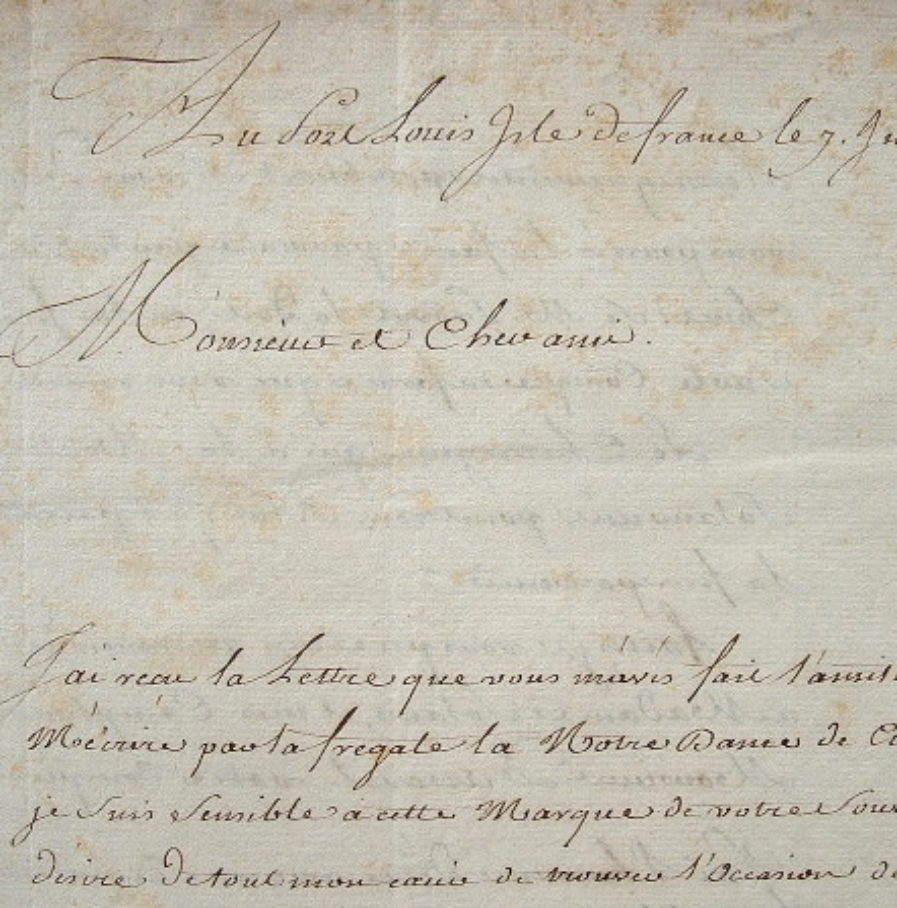 Au Port Louis Isle de france le 7. Ju
Monsieur et Cher ami.
J'ai recu la Lettre que vous m'avés fait l'amit
M'écrire par la fregate la Notre Dame de
je suis sensible a cette Marque de votre Souv
desire de tout mon cœur de trouver l'Occasion de